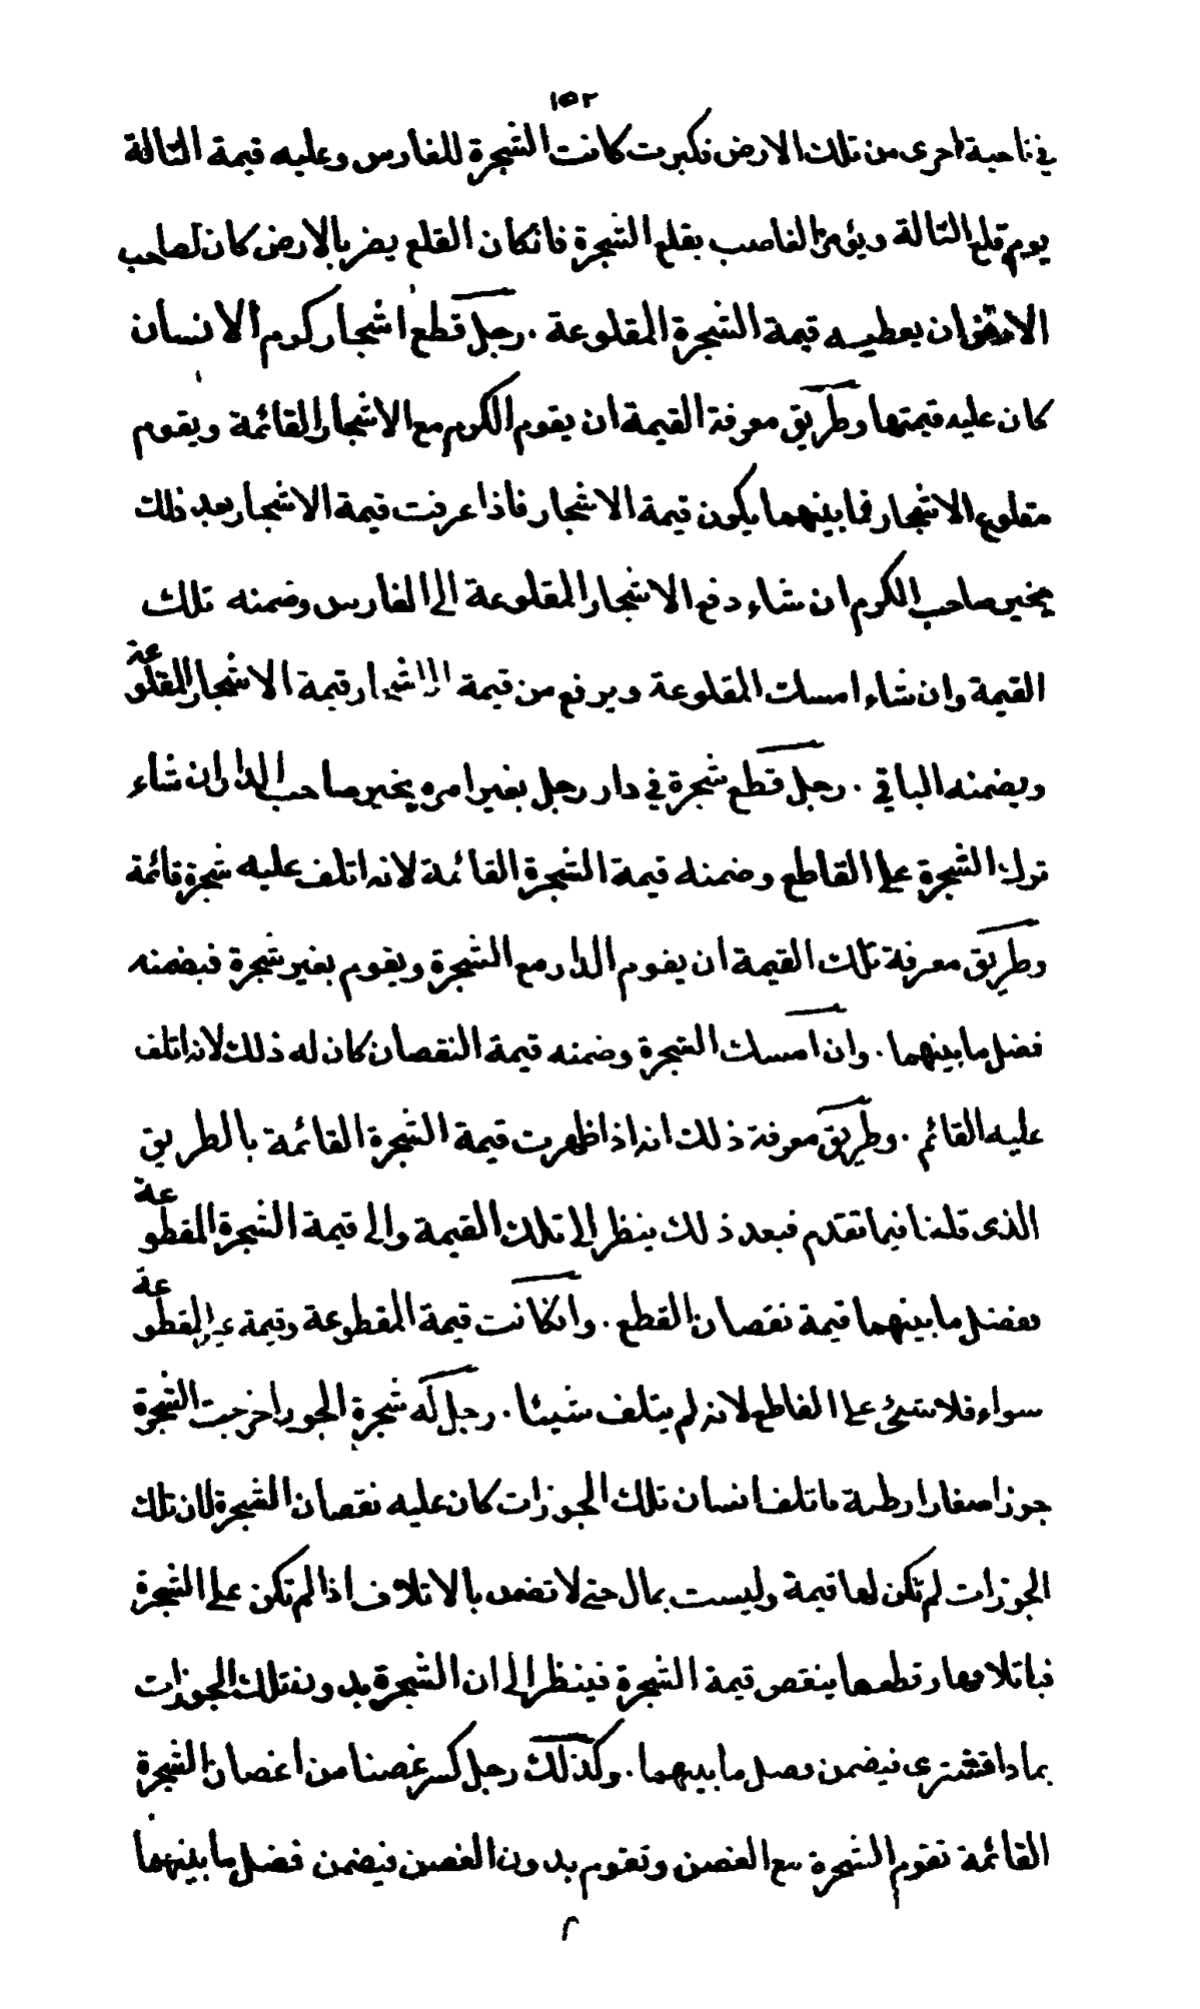 ١٥٢
في ناحية اخرى من تلك الارض فكبرت كانت الشجرة للغارس وعليه قيمة التالة
يوم قلع التالة ويؤمر الغاصب بقلع الشجرة فانكان القلع يضر بالارض كان لصاحب
الارض ان يعطيه قيمة الشجرة المقلوعة . رجل قطع اشجار كروم الانسان
كان عليه قيمتها وطريق معرفة القيمة ان يقوم الكرم مع الاشجار القائمة ويقوم
مقلوع الاشجار فما بينهما يكون قيمة الاشجار فاذا عرفت قيمة الاشجار بعد ذلك
يخير صاحب الكرم ان شاء دفع الاشجار المقلوعة الى الغارس وضمنه تلك
القيمة وان شاء امسك المقلوعة ويرفع من قيمة الاشجار قيمة الاشجار المقلوعة
ويضمنه الباقي . رجل قطع شجرة في دار رجل بغير امره يخير صاحب الدار ان شاء
ترك الشجرة على القاطع وضمنه قيمة الشجرة القائمة لانه اتلف عليه شجرة قائمة
وطريق معرفة تلك القيمة ان يقوم الدار مع الشجرة ويقوم بغير شجرة فيضمنه
فضل ما بينهما . وان امسك الشجرة وضمنه قيمة النقصان كان له ذلك لانه اتلف
عليه القائم . وطريق معرفة ذلك انه اذا ظهرت قيمة الشجرة القائمة بالطريق
الذى قلنا فيما تقدم فبعد ذلك ينظر الى تلك القيمة والى قيمة الشجرة المقطوعة
بفضل ما بينهما قيمة نقصان القطع . وانكانت قيمة المقطوعة وقيمة غير المقطوعة
سواء فلا شئ على القاطع لانه لم يتلف شيئا . رجل له شجرة الجوز اخرجت الشجرة
جوزا صغارا رطبة فاتلف انسان تلك الجوزات كان عليه نقصان الشجرة لان تلك
الجوزات لم تكن لها قيمة وليست بمال حتى لا تضمن بالاتلاف اذا لم تكن على الشجرة
فباتلافها وقطعها ينقص قيمة الشجرة فينظر الى ان الشجرة بدون تلك الجوزات
بماذا تشترى فيضمن فضل ما بينهما . وكذلك رجل كسر غصنا من اغصان الشجرة
القائمة تقوم الشجرة مع الغصن وتقوم بدون الغصن فيضمن فضل ما بينهما
٢